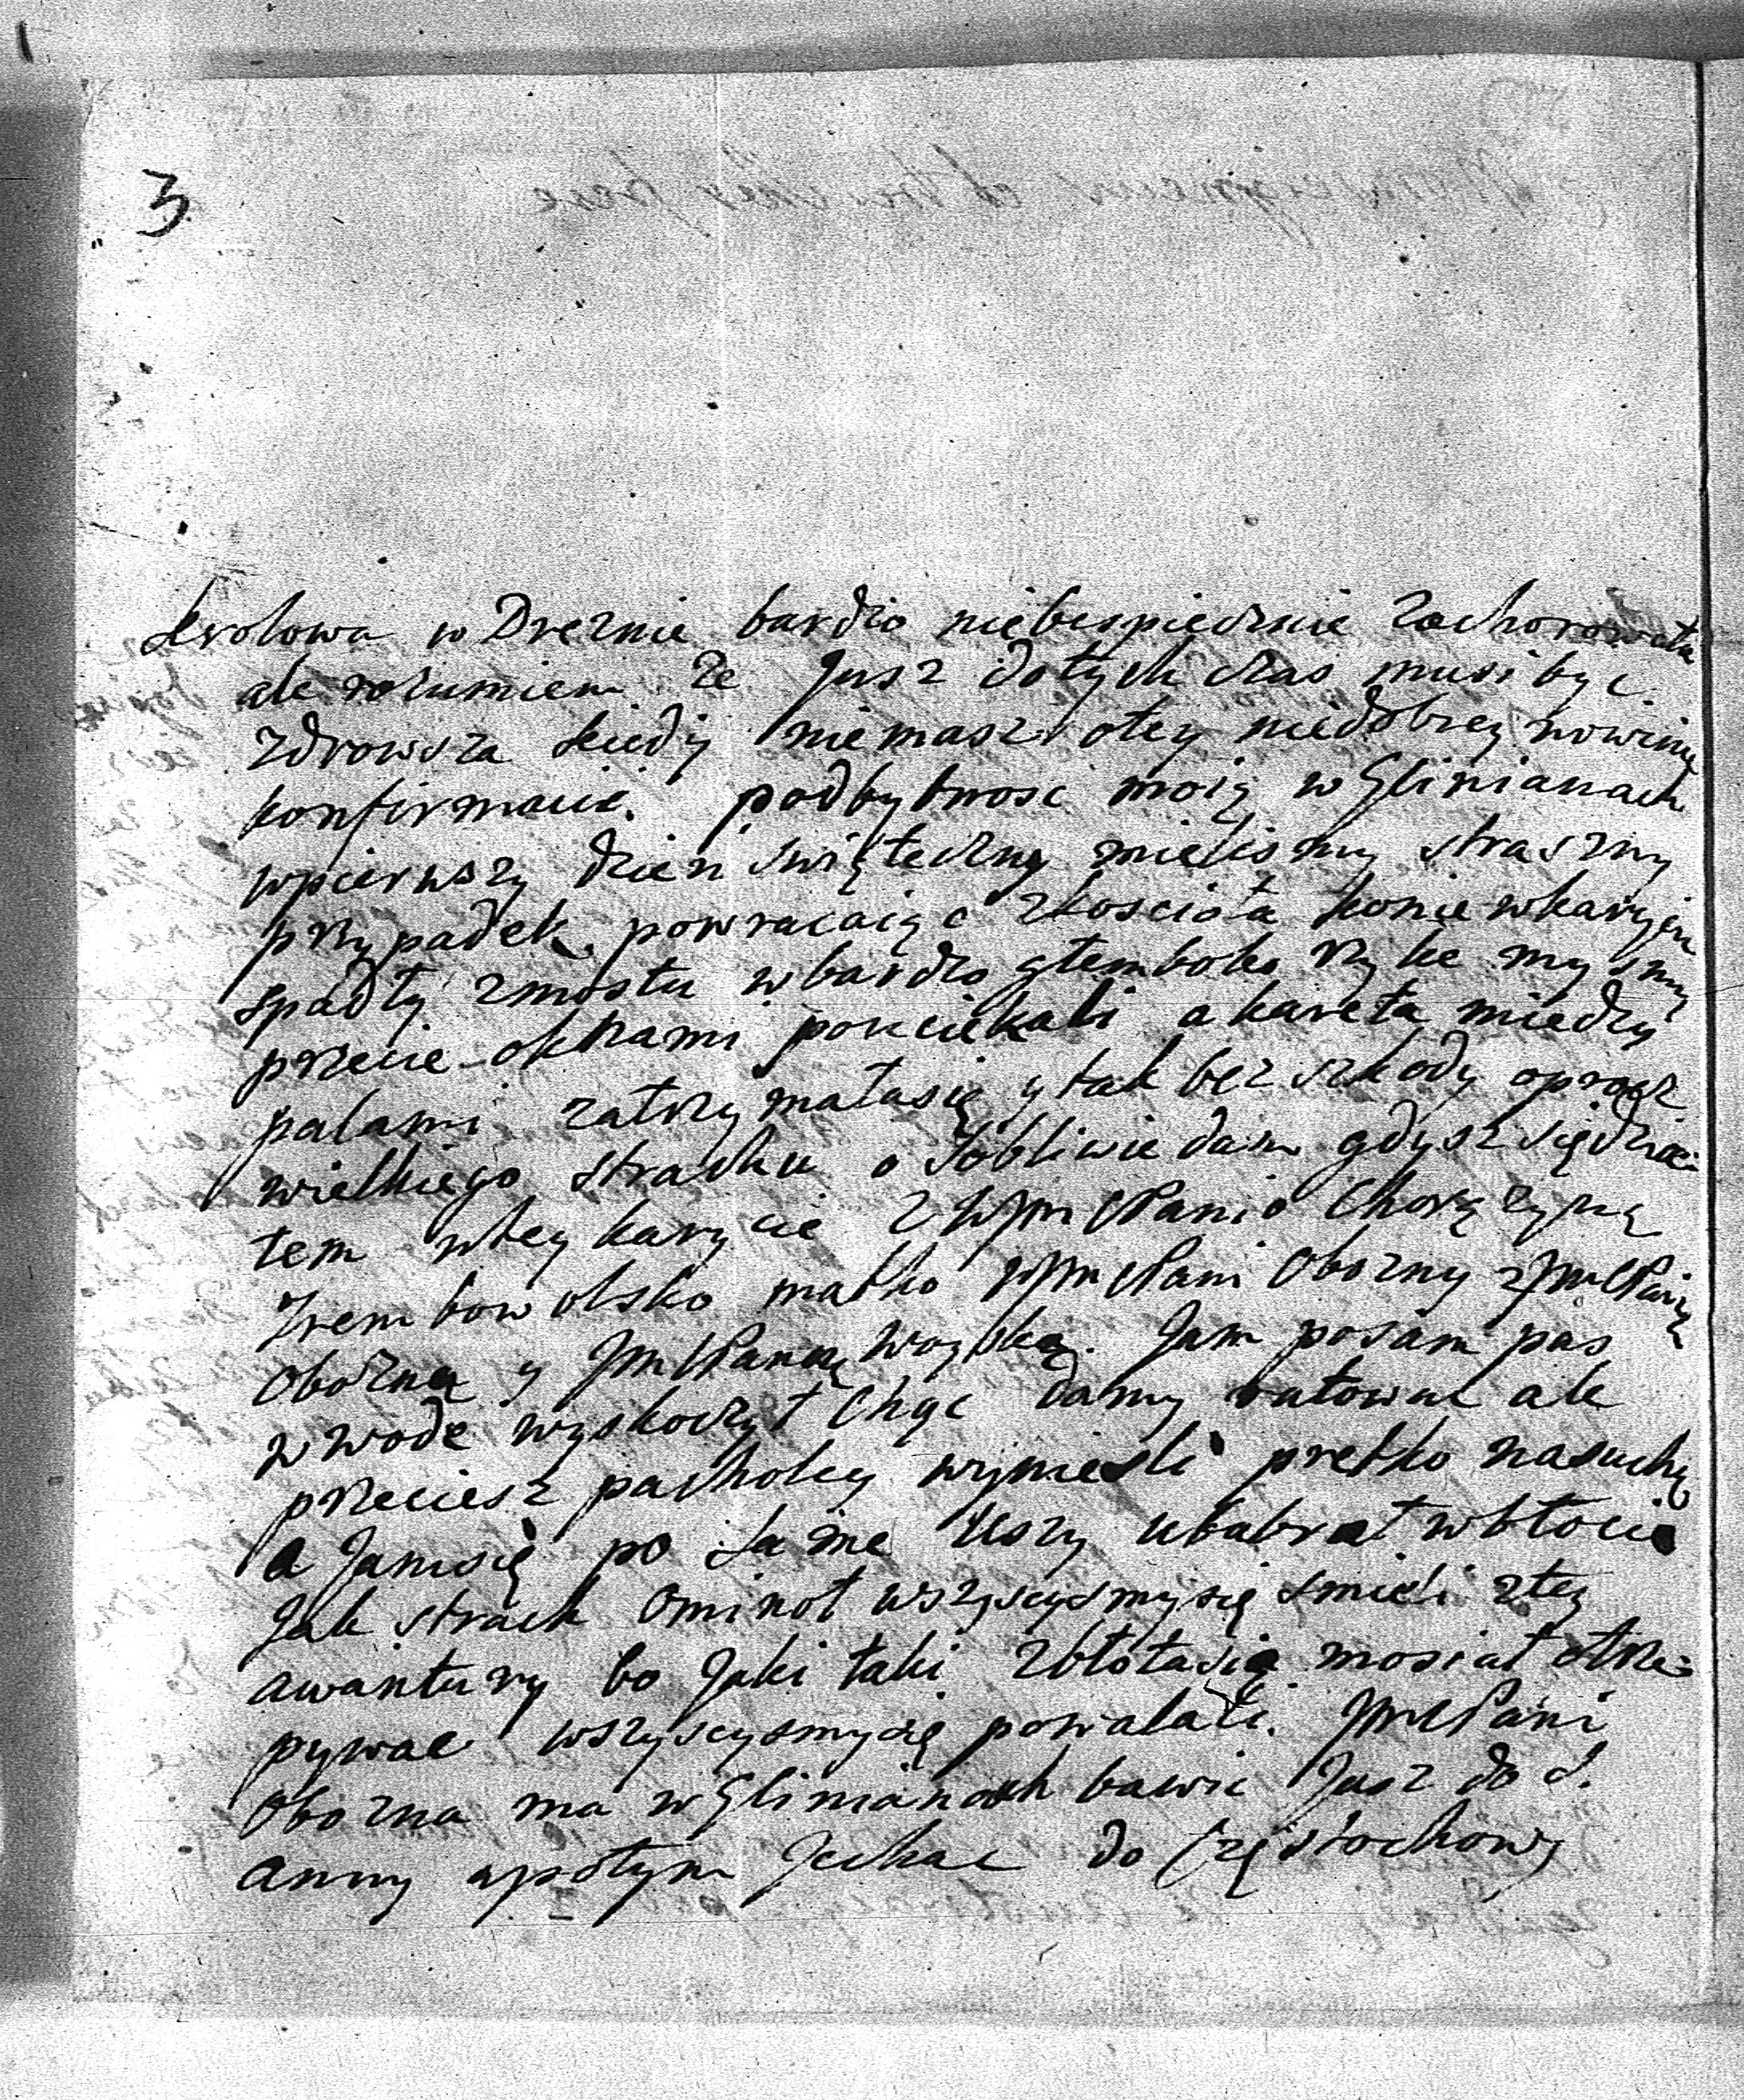 3
Krolowa w Dreznie bardzo niebespiecznie zachorowała
ale rozumiem ze Jusz dotych czas musi byc
zdrowsza kiedy niemasz otey niedobrey nowiny
konfirmacie. podbytnosc moię w Glinianach
wpierwszy dzien swięteczny mielismy straszny
przypadek, powracaiąc zkosciola konie wkaryciu
spadły zmostu wbardzo głemboko rzyke my smy
przecie oknami pouciekali a kareta miedzy
palami zatrzymałasię y tak bez szkody oprocz
wielkiego strachu osobliwie dam gdysz siędzia-
łem wtey karycie z WJmcPanio Chorązyną
Trembowolsko matko WJmcPani Obozny zJmcPanią
Obozną y JmcPanną Woyską. Jam posam pas
wwode wyskoczył Chąc damy ratowac ale
przeciesz pacholcy wyniesli pretko nasuchą
a Jamsię po same Uszy ubabrał wbłocie
Jak strach ominoł wszyscysmysię smieli ztey
awantury bo Jaki taki zbłotasię mosiał otrze-
pywac wszyscysmysię powalali. JmcPani
Obozna ma w Glinianach bawic Jusz do S.
Anny apotym Jechac do Częstochowy